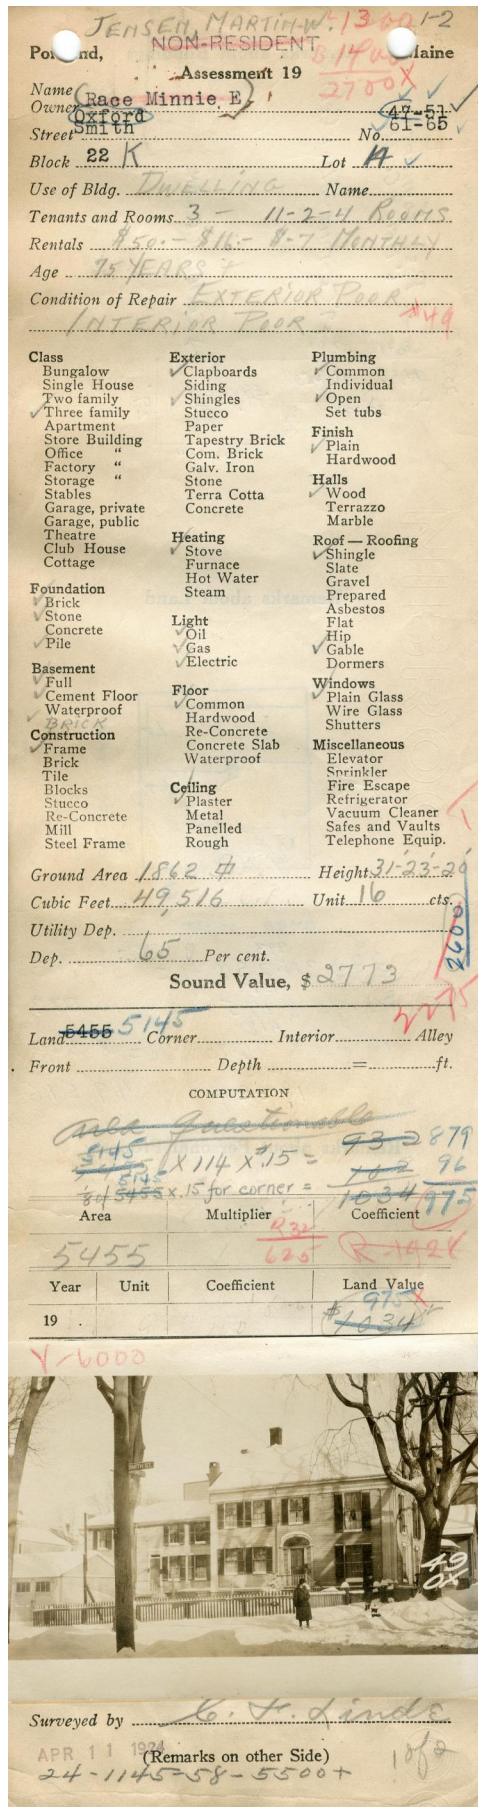 JENSEN, MARTIN W. L 1300 1-2
NON-RESIDENT B 1400
Portland, Maine
Assessment 19 2700 X
Name
Owner Race Minnie E 47-51
Oxford 61-65
Street Smith No.
Block 22 K Lot A
Use of Bldg. DWELLING Name
Tenants and Rooms 3 - 11-2-4 ROOMS
Rentals $50.- $16.- $-7 MONTHLY
Age 75 YEARS +
Condition of Repair EXTERIOR POOR
INTERIOR POOR $49
Class
Bungalow
Single House
Two family
✓ Three family
Apartment
Store Building
Office "
Factory "
Storage "
Stables
Garage, private
Garage, public
Theatre
Club House
Cottage
Foundation
✓ Brick
✓ Stone
Concrete
✓ Pile
Basement
✓ Full
✓ Cement Floor
✓ Waterproof
BRICK
Construction
✓ Frame
Brick
Tile
Blocks
Stucco
Re-Concrete
Mill
Steel Frame
Exterior
✓ Clapboards
Siding
✓ Shingles
Stucco
Paper
Tapestry Brick
Com. Brick
Galv. Iron
Stone
Terra Cotta
Concrete
Heating
✓ Stove
Furnace
Hot Water
Steam
Light
✓ Oil
✓ Gas
✓ Electric
Floor
✓ Common
Hardwood
Re-Concrete
Concrete Slab
Waterproof
Ceiling
✓ Plaster
Metal
Panelled
Rough
Plumbing
✓ Common
Individual
✓ Open
Set tubs
Finish
✓ Plain
Hardwood
Halls
✓ Wood
Terrazzo
Marble
Roof — Roofing
✓ Shingle
Slate
Gravel
Prepared
Asbestos
Flat
✓ Hip
✓ Gable
Dormers
Windows
✓ Plain Glass
Wire Glass
Shutters
Miscellaneous
Elevator
Sprinkler
Fire Escape
Refrigerator
Vacuum Cleaner
Safes and Vaults
Telephone Equip.
Ground Area 1862 Height 31-23-20
Cubic Feet 49,516 Unit 16 cts.
Utility Dep.
2600
Dep. 65 Per cent.
Sound Value, $ 2773
Land 5455 5145 Corner Interior Alley
Front Depth = ft.
COMPUTATION
area questionable
5145 932 879
x 114 x .15 = 102 96
5145
80% 5455 x .15 for corner = 1034 975
Area Multiplier Coefficient
5455 625
Year Unit Coefficient Land Value
975 X
19 $1034
V-6000
SMITH ST.
49
OX
Surveyed by C. F. Linde
APR 11 1924
(Remarks on other Side) 1 of 2
24-1145-58-5500+